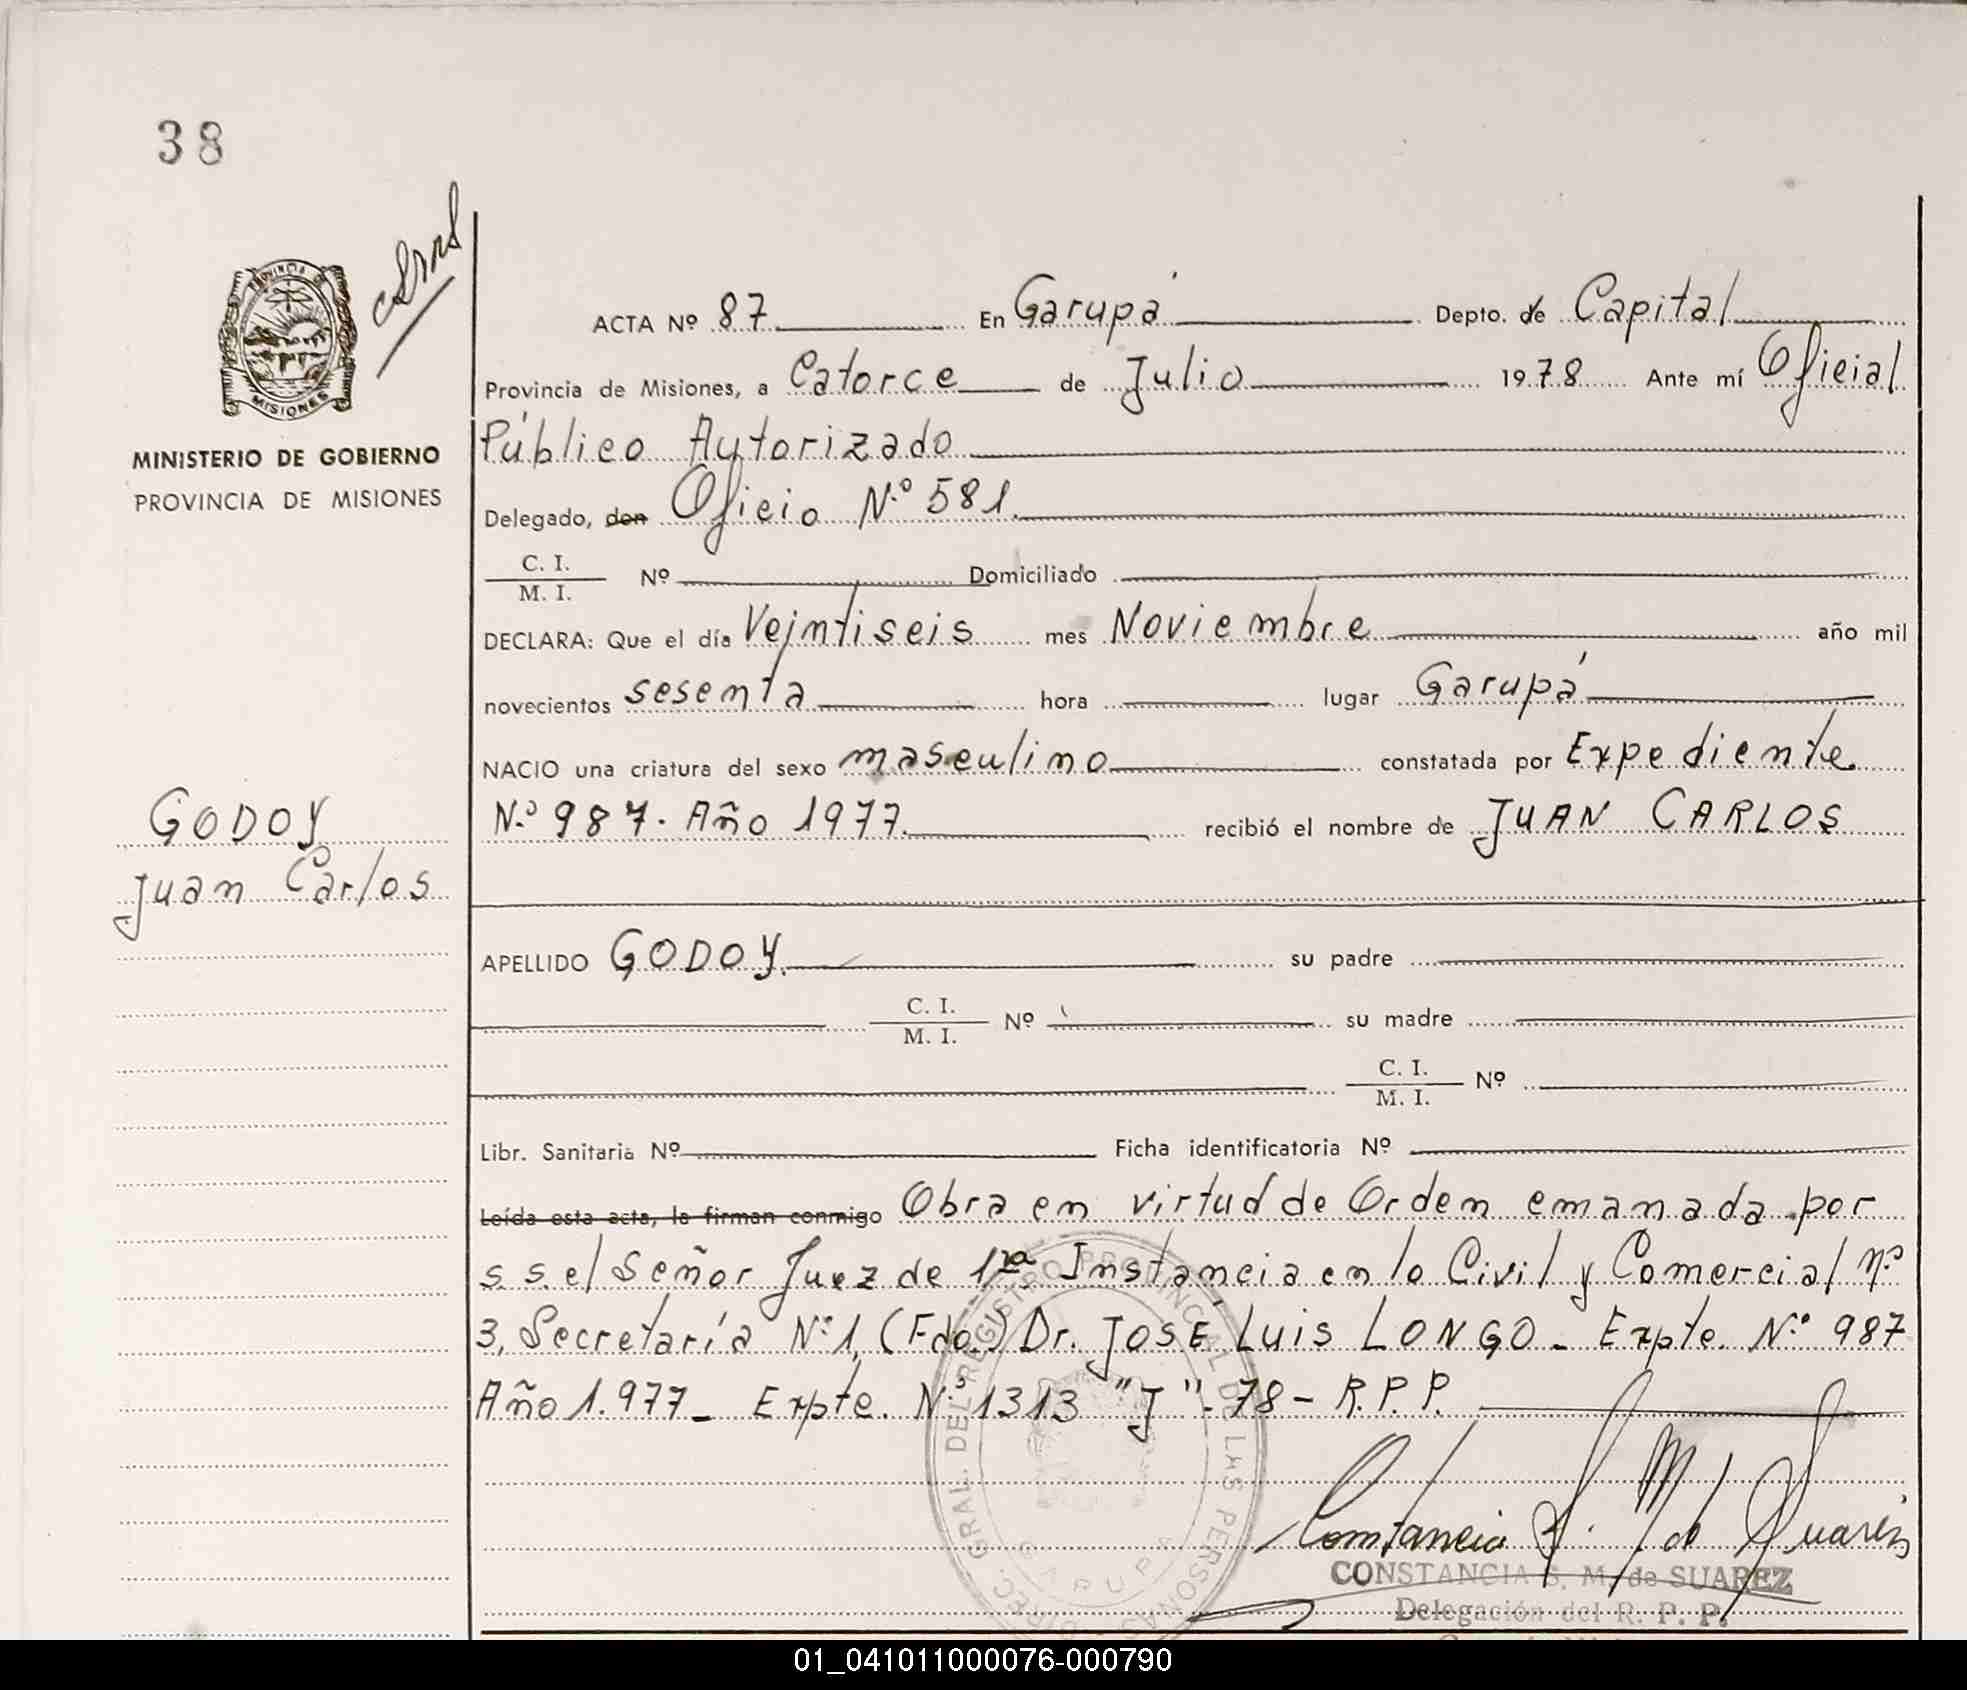 38
PROVINCIA DE
MISIONES
MINISTERIO DE GOBIERNO
PROVINCIA DE MISIONES
GODOY
Juan Carlos
ACTA Nº 87 En Garupá Depto. de Capital
Provincia de Misiones, a Catorce de Julio 1978 Ante mí Oficial
Público Autorizado
Delegado, don Oficio N.º 581.
C. I.
M. I. Nº Domiciliado
DECLARA: Que el día Veintiseis mes Noviembre año mil
novecientos sesenta hora lugar Garupá
NACIO una criatura del sexo masculino constatada por Expediente
N.º 987. Año 1977. recibió el nombre de JUAN CARLOS
APELLIDO GODOY. su padre
C. I.
M. I. Nº su madre
C. I.
M. I. Nº
Libr. Sanitaria Nº Ficha identificatoria Nº
Leída esta acta, la firman conmigo Obra en virtud de Orden emanada por
s.s. el Señor Juez de 1ra Instancia en lo Civil y Comercial n.º
3, Secretaría Nº 1, (Fdo.) Dr. JOSÉ Luis LONGO - Expte. N.º 987
Año 1.977 - Expte. N.º 1313 "J" - 78 - R.P.P.
DIREC. GRAL. DEL REGISTRO PROVINCIAL DE LAS PERSONAS
GARUPA
Constancia S. M. de Suarez
CONSTANCIA S. M. de SUAREZ
Delegación del R. P. P.
01_041011000076-000790